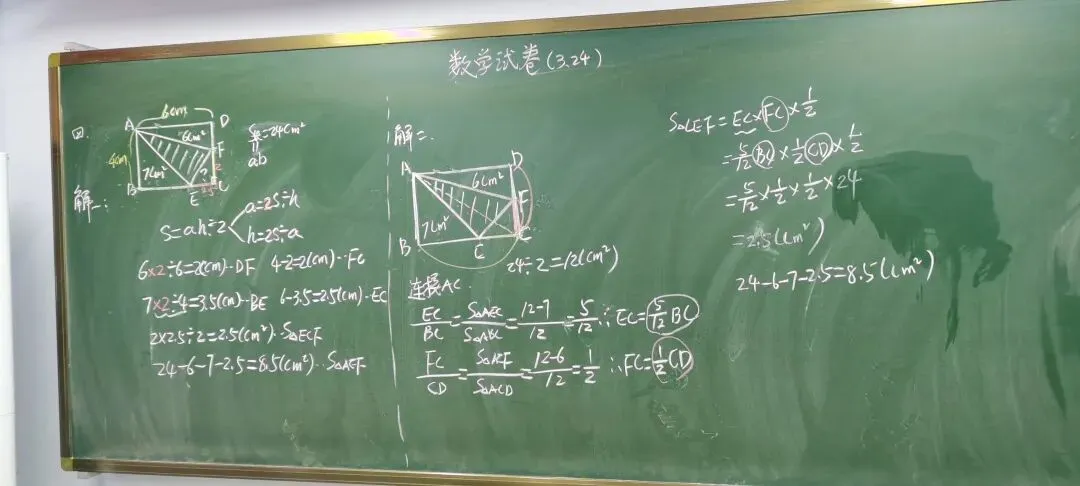 数学试卷(3.24)
四.
6cm
A
D
6cm²
F
4cm
7cm²
?
2
B
E
2.5
C
S=24cm²
ab
解一:
S=ah÷2
a=2S÷h
h=2S÷a
6×2÷6=2(cm)··DF 4-2=2(cm)··FC
7×2÷4=3.5(cm)··BE 6-3.5=2.5(cm)··EC
2×2.5÷2=2.5(cm²)··S△ECF
24-6-7-2.5=8.5(cm²)··S△AEF
解二:
A
D
6cm²
F
7cm²
B
E
C
24÷2=12(cm²)
连接AC.
EC/BC=S△AEC/S△ABC=(12-7)/12=5/12∴EC=5/12BC
FC/CD=S△ACF/S△ACD=(12-6)/12=1/2∴FC=1/2CD
S△CEF=EC×FC×1/2
=5/12BC×1/2CD×1/2
=5/12×1/2×1/2×24
=2.5(cm²)
24-6-7-2.5=8.5(cm²)